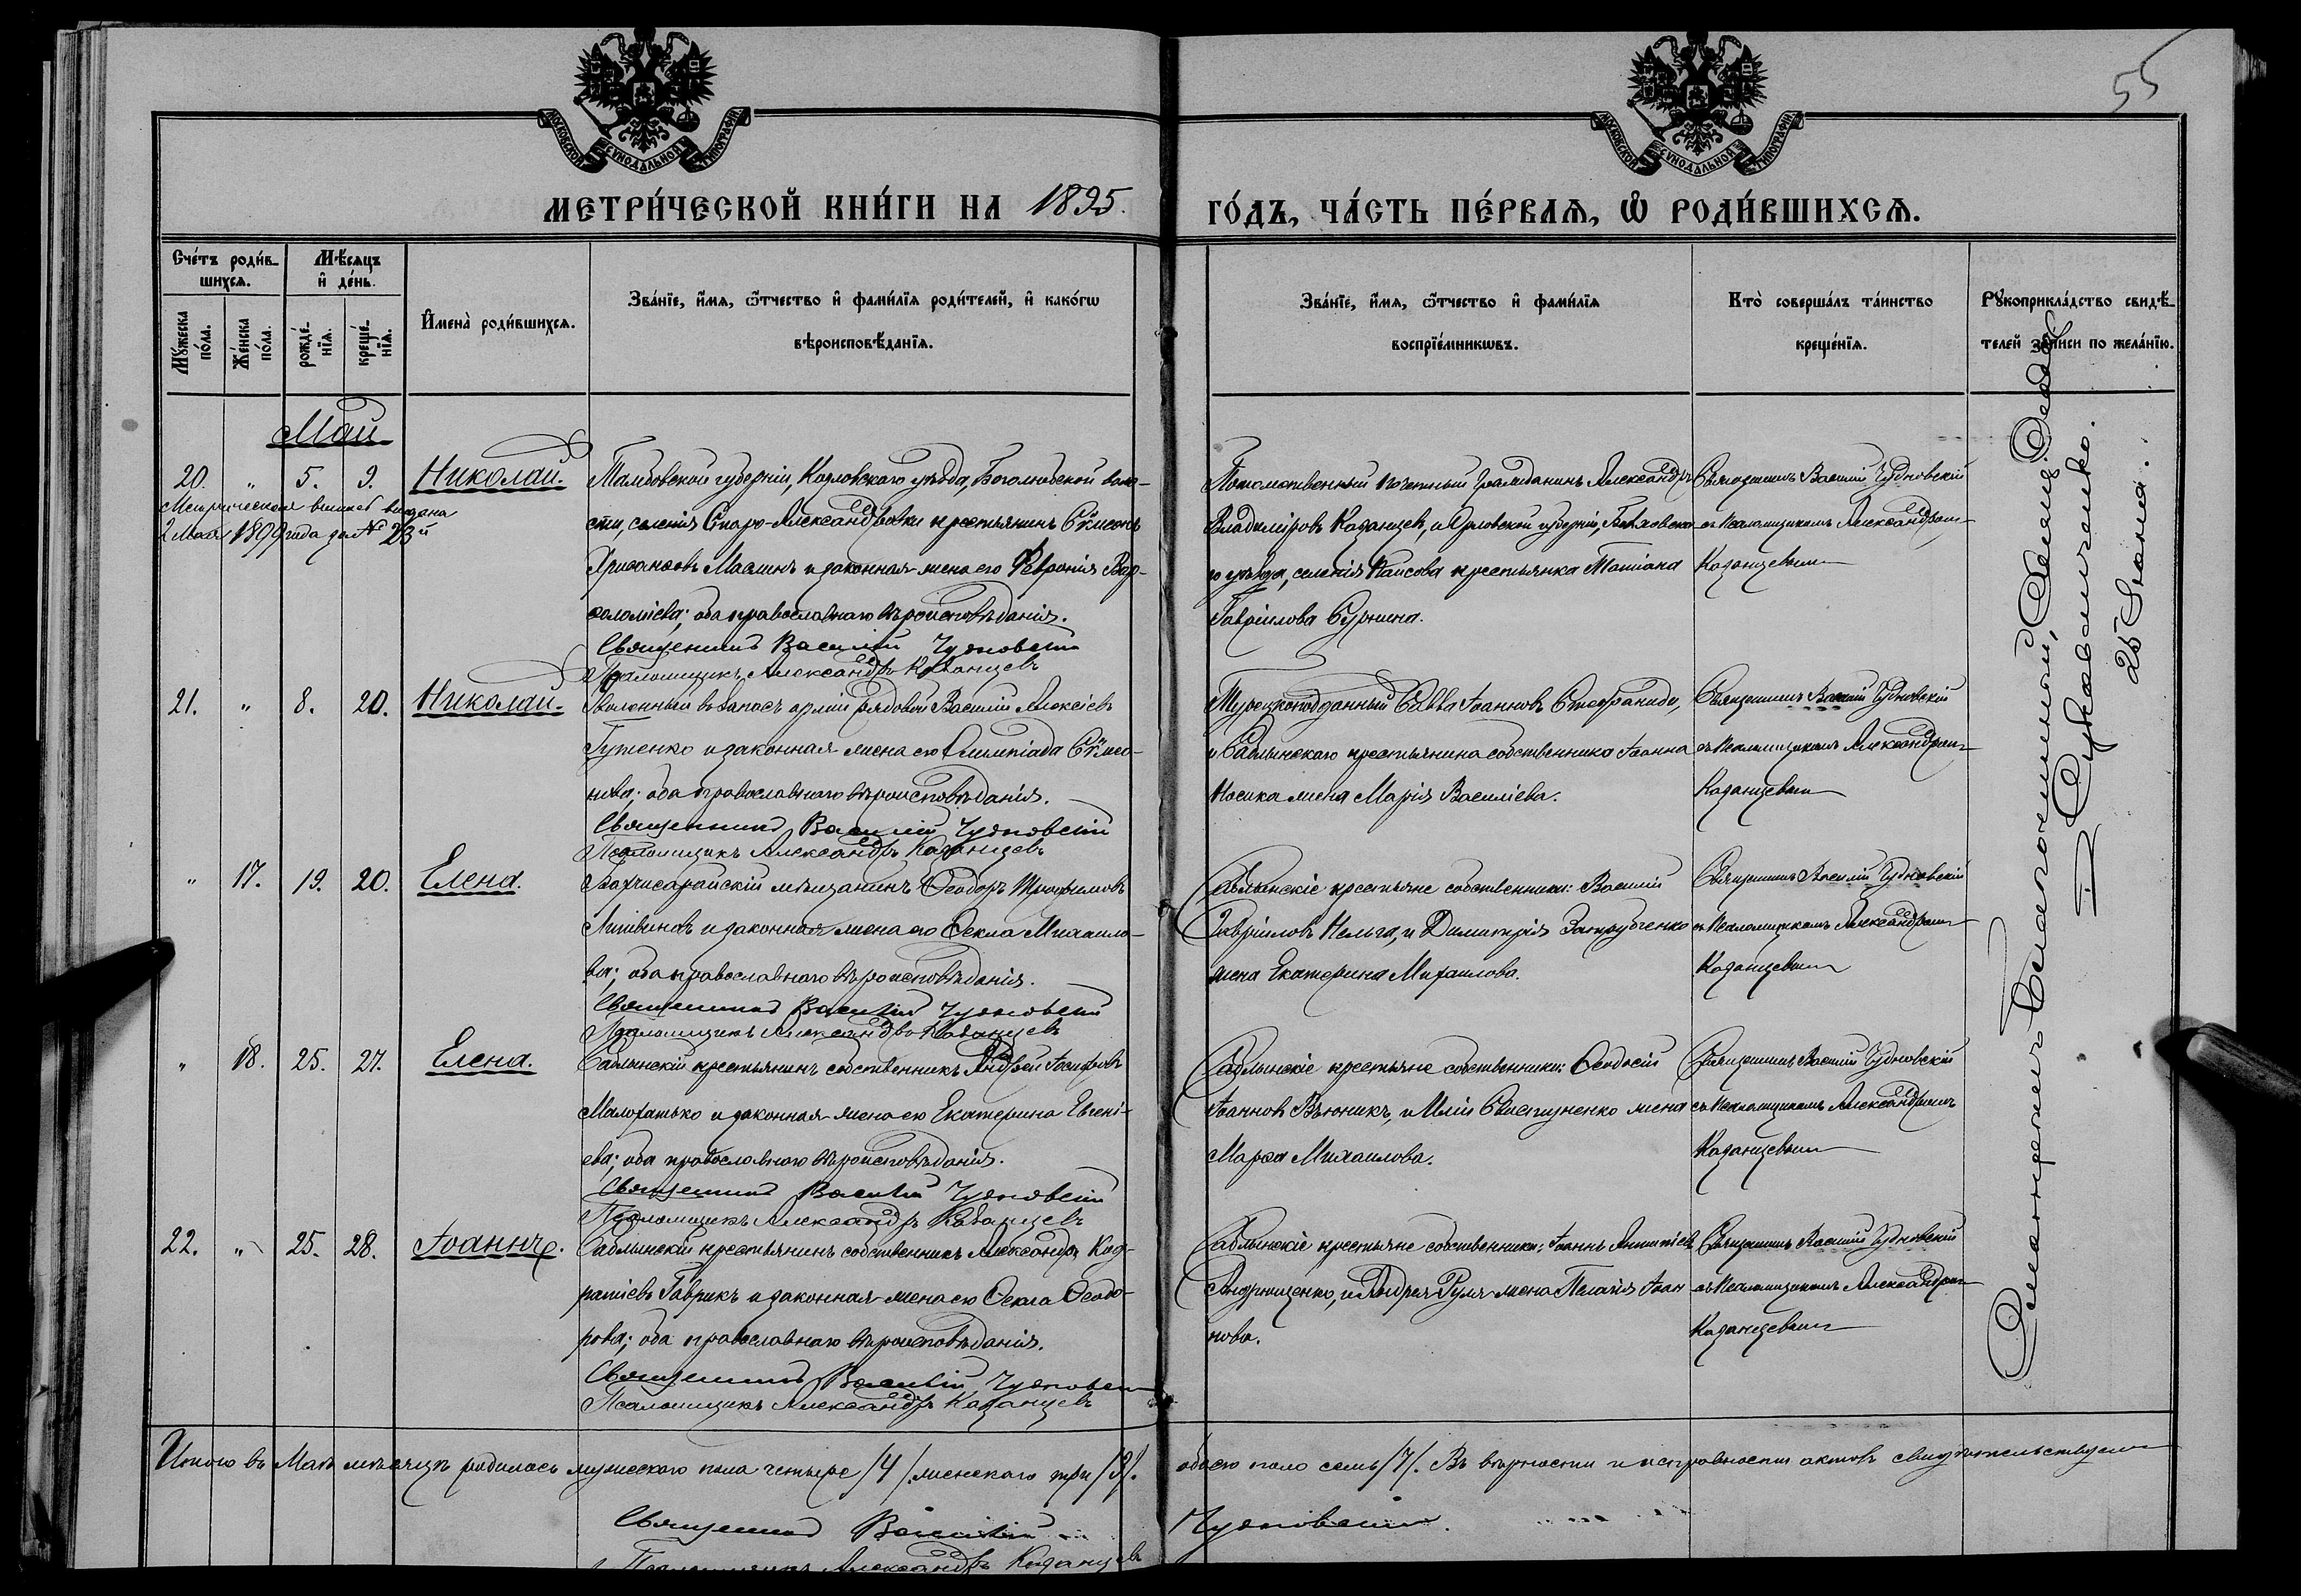 55
МОСКОВСКОЙ СѴНОДАЛЬНОЙ ТИПОГРАФІИ
МОСКОВСКОЙ СѴНОДАЛЬНОЙ ТИПОГРАФІИ
МЕТРИ́ЧЕСКОЙ КНИ́ГИ НА 1895. ГО́ДЪ, ЧА́СТЬ ПЕ́РВАѦ, Ѽ РОДИ́ВШИХСѦ.
Сче́тъ роди́в-
шихсѧ.
Мꙋ́жеска
по́ла.
Же́нска
по́ла.
Мѣ́сѧцъ
и҆ де́нь.
рожде́-
нїѧ.
креще́-
нїѧ.
И҆мена̀ роди́вшихсѧ.
Зва́нїе, и҆́мѧ, ѻ҆́тчество и҆ фами́лїѧ роди́телей, и҆ како́гѡ
вѣроисповѣ́данїѧ.
Зва́нїе, и҆́мѧ, ѻ҆́тчество и҆ фами́лїѧ
воспрїе́мникѡвъ.
Кто̀ соверша́лъ та́инство
креще́нїѧ.
Рꙋкоприкла́дство свидѣ́-
телей за́писи по жела́нїю.
Май
20. " 5. 9. Николай.
Метрическая выпись выдана
2 Мая 1899 года за № 23й
Тамбовской губерніи, Козловскаго уѣзда, Боголюбской воло-
сти, селенія Старо-Александровки крестьянинъ Сѵмеонъ
Хрисанѳовъ Маслинъ и законная жена его Феѵронія Вар-
ѳоломіева; оба православнаго вѣроисповѣданія.
Священникъ Василій Чудновскій
Псаломщикъ Александръ Казанцевъ
Потомственный почетный гражданинъ Александръ
Владиміровъ Казанцевъ, и Орловской губерніи, Болховска-
го уѣзда, селенія Паисова крестьянка Татіана
Гавріилова Сурнина.
Священникъ Василій Чудновскій
съ Псаломщикомъ Александромъ
Казанцевымъ
21. " 8. 20. Николай.
Уволенный въ запасъ арміи рядовой Василій Алексіевъ
Гутенко и законная жена его Олимпіада Сѵмео-
нова; оба православнаго вѣроисповѣданія.
Священникъ Василій Чудновскій
Псаломщикъ Александръ Казанцевъ
Турецкоподданный Савва Іоанновъ Стефаниди,
и Саблынскаго крестьянина собственника Іоанна
Носика жена Марія Василіева.
Священникъ Василій Чудновскій
съ Псаломщикомъ Александромъ
Казанцевымъ
" 17. 19. 20. Елена.
Бахчисарайскій мѣщанинъ Ѳеодоръ Трофимовъ
Литвиновъ и законная жена его Ѳекла Михаило-
ва; оба православнаго вѣроисповѣданія.
Священникъ Василій Чудновскій
Псаломщикъ Александръ Казанцевъ
Саблынскіе крестьяне собственники: Василій
Гавріиловъ Нельга, и Димитрія Затрубченко
жена Екатерина Михаилова.
Священникъ Василій Чудновскій
съ Псаломщикомъ Александромъ
Казанцевымъ
" 18. 25. 27. Елена.
Саблынскій крестьянинъ собственникъ Андрей Іосифовъ
Малохатько и законная жена его Екатерина Евгені-
ева; оба православнаго вѣроисповѣданія.
Священникъ Василій Чудновскій
Псаломщикъ Александръ Казанцевъ
Саблынскіе крестьяне собственники: Ѳеодосій
Іоанновъ Вьюникъ, и Иліи Свистуненко жена
Марѳа Михаилова.
Священникъ Василій Чудновскій
съ Псаломщикомъ Александромъ
Казанцевымъ
22. " 25. 28. Іоаннъ.
Саблынскій крестьянинъ собственникъ Александръ Код-
ратіевъ Гаврикъ и законная жена его Ѳекла Ѳеодо-
рова; оба православнаго вѣроисповѣданія.
Священникъ Василій Чудновскій
Псаломщикъ Александръ Казанцевъ
Саблынскіе крестьяне собственники: Іоаннъ Антипіевъ
Андрющенко, и Андрея Руля жена Пелагія Іоан-
нова.
Священникъ Василій Чудновскій
съ Псаломщикомъ Александромъ
Казанцевымъ
Смотрѣлъ Благочинный, Свящ. Ѳеодоръ
Сукованченко.
25 Іюня.
Итого въ Маѣ мѣсяцѣ родилось мужескаго пола четыре /4/. женскаго три /3/. обоего пола семь /7/. Въ вѣрности и исправности актовъ свидѣтельствуемъ
Священникъ Василій Чудновскій.
Псаломщикъ Александръ Казанцевъ